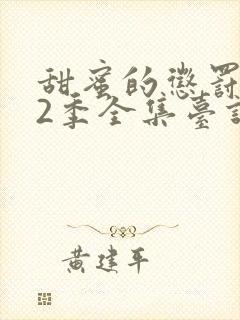 甜蜜的懲罰
2季全集臺
黃建平